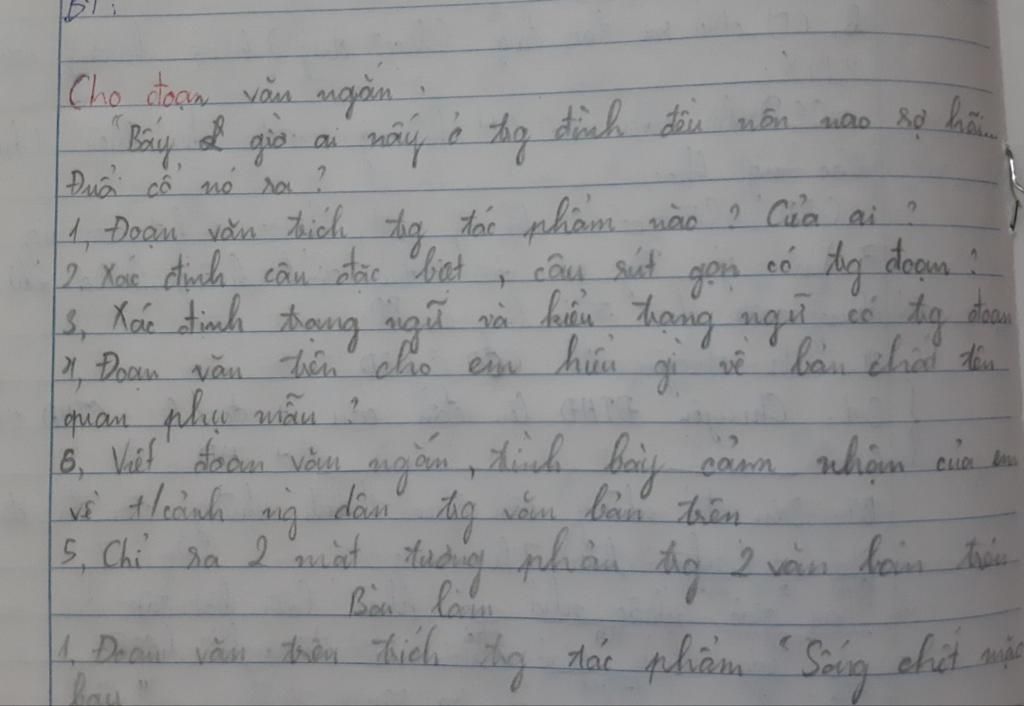 BT:
Cho đoạn văn ngắn.
"Bấy giờ ai nấy ở tg đình đều nôn nao sợ hãi...
Đuổi cổ nó ra?
1, Đoạn văn trích tg tác phẩm nào? Của ai?
2. Xác định câu đặc biệt, câu rút gọn có tg đoạn?
3, Xác định trạng ngữ và kiểu trạng ngữ có tg đoạn
4, Đoạn văn trên cho em hiểu gì về bản chất tên
quan phụ mẫu?
6, Viết đoạn văn ngắn, trình bày cảm nhận của em
về t/cảnh ng dân tg văn bản trên
5, Chỉ ra 2 mặt tương phản tg 2 văn bản trên
Bài làm
1, Đoạn văn trên trích tg tác phẩm "Sống chết mặc
bay"